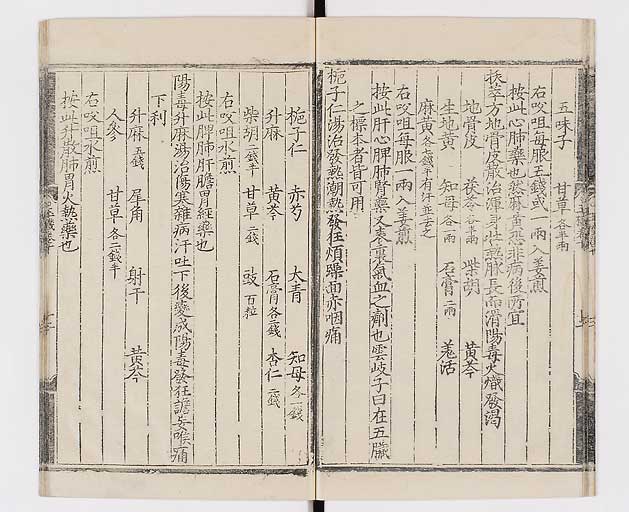 五味子 甘草各半兩
右㕮咀每服五錢或一兩入姜煎
按此心肺藥也然麻黃恐非病後所宜
揀萃方地骨皮散治渾身壯熱脉長而滑陽毒火熾發渴
地骨皮 茯苓各半兩 柴胡 黃芩
生地黃 知母各一兩 石膏二兩 羗活
麻黃各七錢半有汗並去之
右㕮咀每服一兩入姜煎
按此肝心脾肺腎藥又表裏氣血之劑也雲岐子曰在五臟
之標本者皆可用
梔子仁湯治發熱潮熱發狂煩躁面赤咽痛
梔子仁 赤芍 大青 知母各一錢
升麻 黃芩 石膏各二錢 杏仁二錢
柴胡一錢半 甘草一錢 豉百粒
右㕮咀水煎
按此脾肺肝膽胃經藥也
陽毒升麻湯治傷寒雜病汗吐下後變成陽毒發狂譫妄喉痛
下利
升麻五錢 犀角 射干 黃芩
人參 甘草各二錢半
右㕮咀水煎
按此升散肺胃火熱藥也